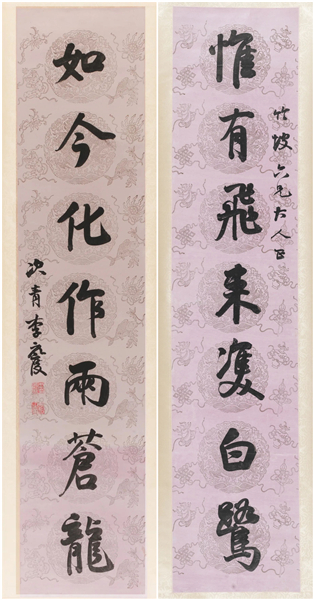 惟有飛来雙白鷺
竹坡六兄大人正
如今化作兩蒼龍
次青李元度